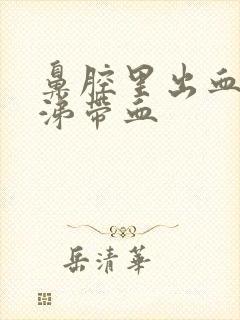 鼻腔里出血
涕帶血
岳清華